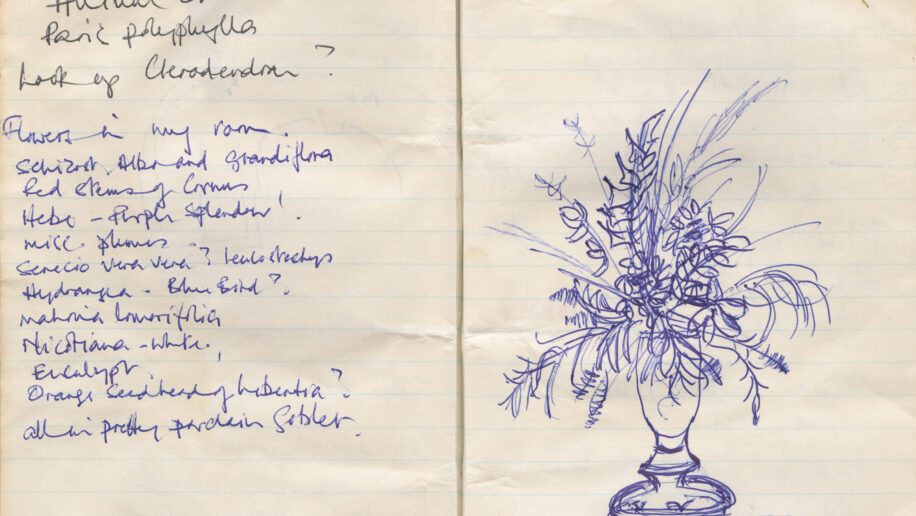 Paris polyphylla
Look up Clerodendron ?
Flowers in my room.
Schizost. Alba and Grandiflora
Red Stems of Cornus
Hebe - Purple Splendour !
misc. plumes
Senecio vera vera ? leucostachys
Hydrangea - Blue Bird ?
mahonia lomarifolia
Nicotiana - white.
Eucalypt.
Orange Seedhead of Libertia ?
all in pretty porcelain Goblet.